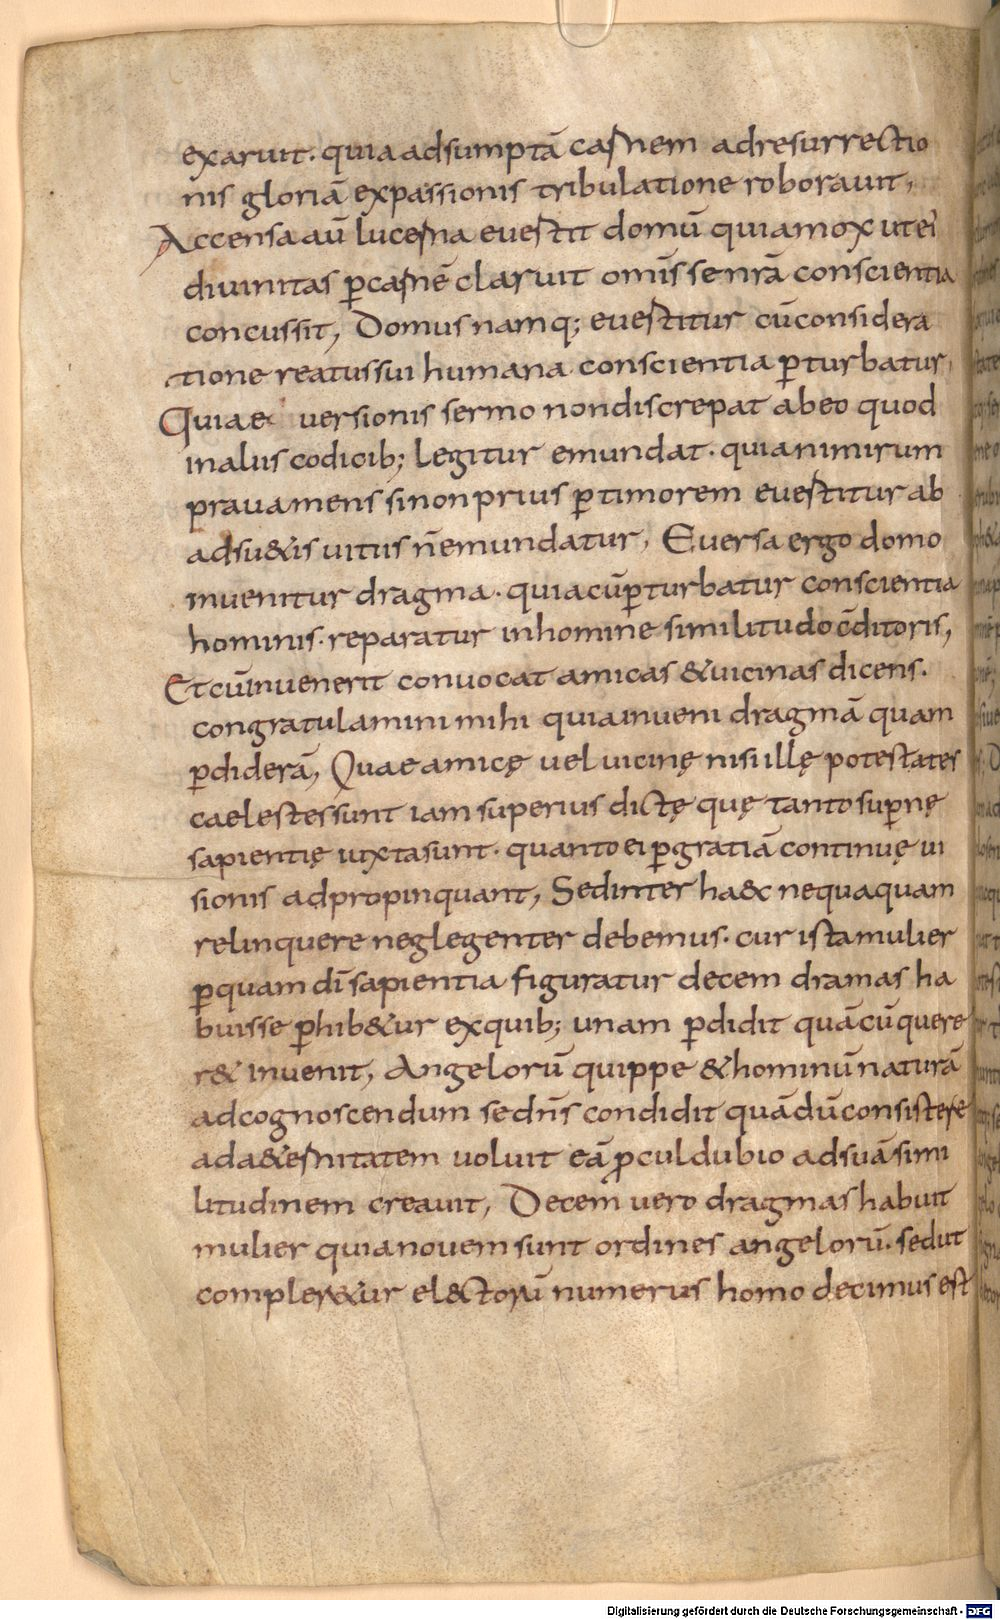 exaruit. quia adsumptā carnem adresurrectio
nis gloriā expassionis tribulatione roborauit,
Accensa aū lucerna euertit domū quiamox utei
diuinitas p̄carnē claruit omīs se nrā conscientia
concussit, Domus namq; euertitur cūconsidera
tione reatussui humana conscientia p̄turbatur,
Quiae uersionis sermo nondiscrepat abeo quod
inaliis codicib; legitur emundat. quianimirum
prauamens sinonprius p̄timorem euertitur ab
adsu&is uitiis n̄emundatur, Euersa ergo domo
inuenitur dragma. quiacūp̄turbatur conscientia
hominis. reparatur inhomine similitudo c̄ditoris,
Etcūinuenerit conuocat amicas &uicinas dicens.
congratulamini mihi quiainueni dragmā quam
p̄diderā, Quae amicę uel uicinę nisi illę potestates
caelestes sunt iam superius dictę quę tanto sup̄nę
sapientię iuxtasunt. quanto ei p̄gratiā continuę ui
sionis adpropinquant, Sedinter ha&c nequaquam
relinquere neglegenter debemus. cur istamulier
p̄quam dī sapientia figuratur decem dramas ha
buisse p̄hib&ur exquib; unam p̄didit quā cū quere
r& inuenit, Angelorū quippe &hominū naturā
adcognoscendum se dn̄s condidit quā dū consistere
ada&ernitatem uoluit eā p̄culdubio adsuā simi
litudinem creauit, Decem uero dragmas habuit
mulier quia nouem sunt ordines angelorū. sedut
compler&ur el&ctorū numerus homo decimus est
Digitalisierung gefördert durch die Deutsche Forschungsgemeinschaft - DFG